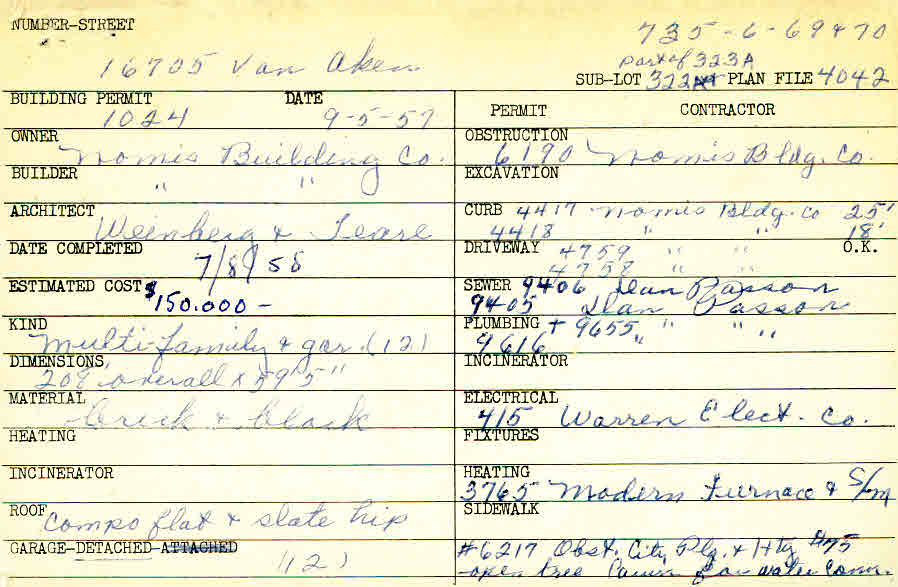 NUMBER-STREET
735-6-69+70
16705 Van Aken
part of 323A
SUB-LOT 322 PLAN FILE 4042
BUILDING PERMIT DATE
1024 9-5-57
PERMIT CONTRACTOR
OWNER
Nomis Building Co.
OBSTRUCTION
6190 Nomis Bldg. Co.
BUILDER
" "
EXCAVATION
ARCHITECT
Weinberg & Teare
CURB 4417 Nomis Bldg. Co 25'
4418 " " 18'
DATE COMPLETED
7/8/58
DRIVEWAY 4759 " " O.K.
4758 " "
ESTIMATED COST
$150.000-
SEWER 9406 Dan Passon
9405 Dan Passon
KIND
Multi-family & gar. (12)
PLUMBING + 9655 " " "
9616 "
DIMENSIONS
208' overall x 59'5"
INCINERATOR
MATERIAL
brick & block
ELECTRICAL
415 Warren Elect. Co.
HEATING
FIXTURES
INCINERATOR
HEATING
3765 Modern Furnace & S/m
ROOF
Compo flat & slate hip
SIDEWALK
GARAGE-DETACHED-ATTACHED
(12)
#6217 Obst. City Plg. & Htg #75
-open tree lawn for water conn.